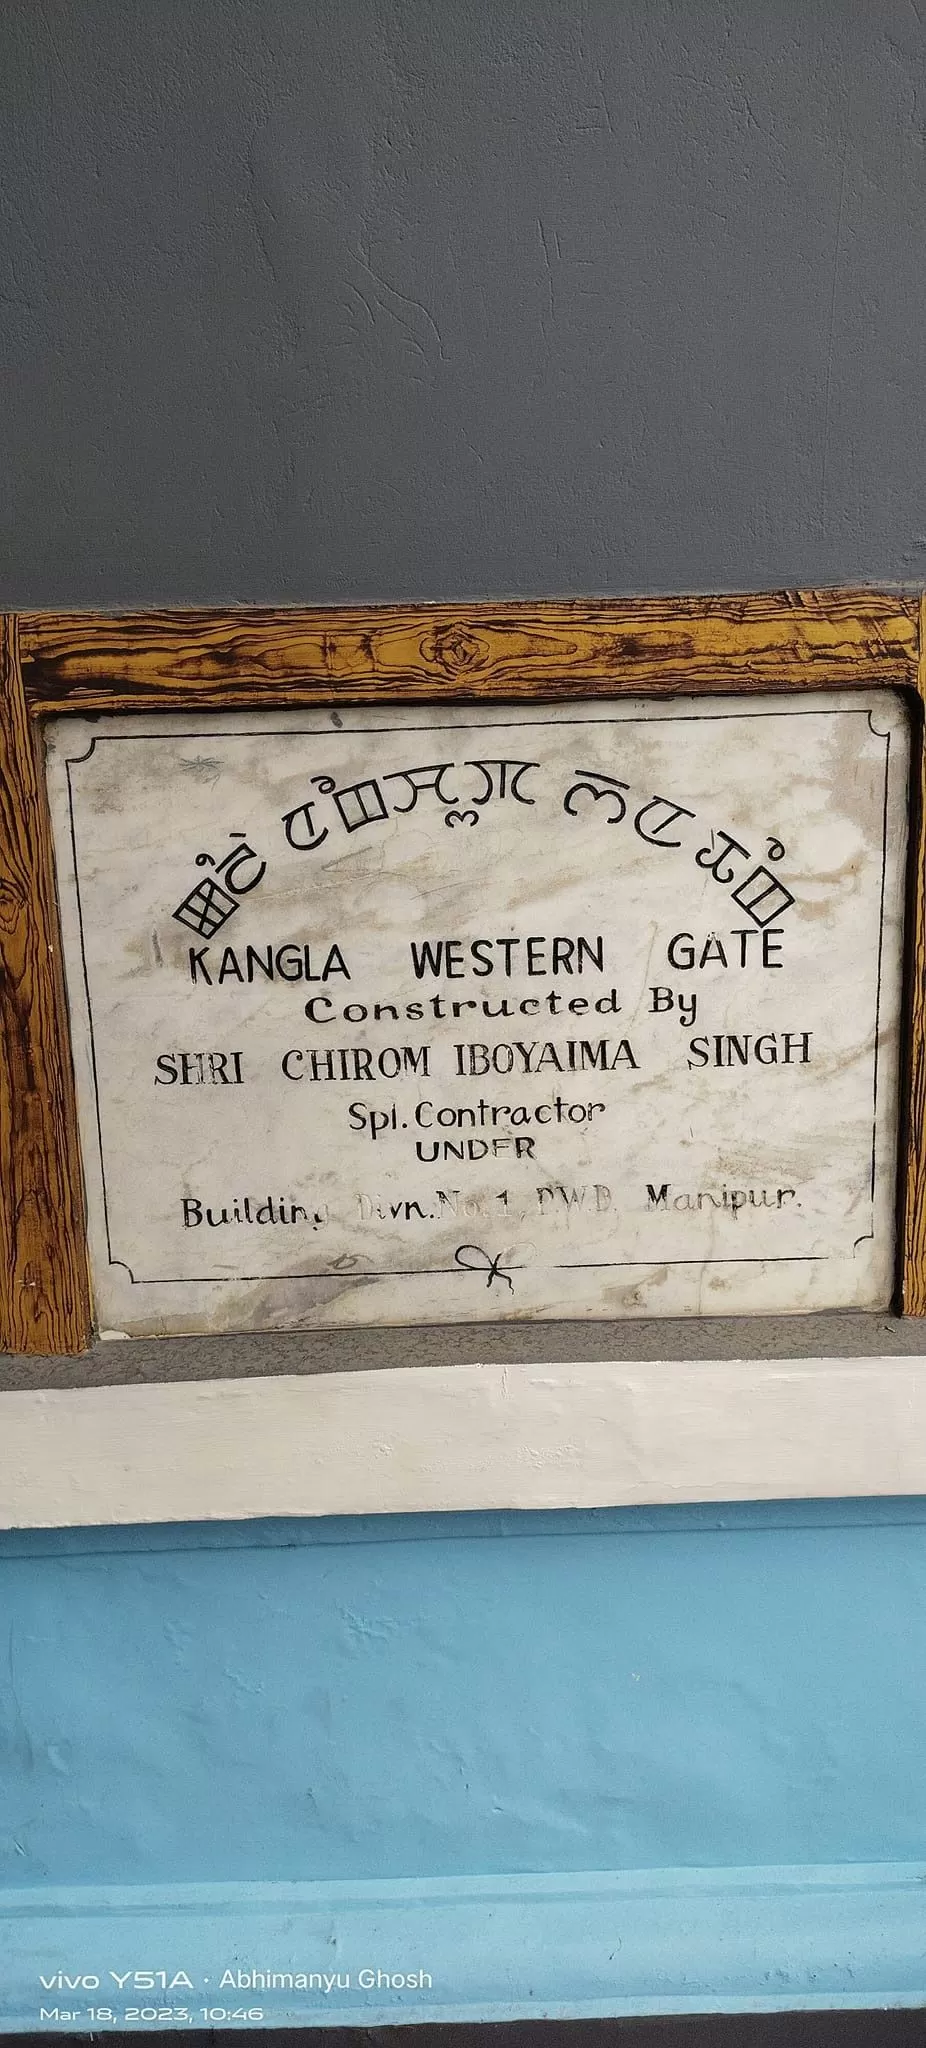 KANGLA WESTERN GATE
Constructed By
SHRI CHIROM IBOYAIMA SINGH
Spl. Contractor
UNDER
Building Divn. No. 1, P.W.D. Manipur.
vivo Y51A · Abhimanyu Ghosh
Mar 18, 2023, 10:46